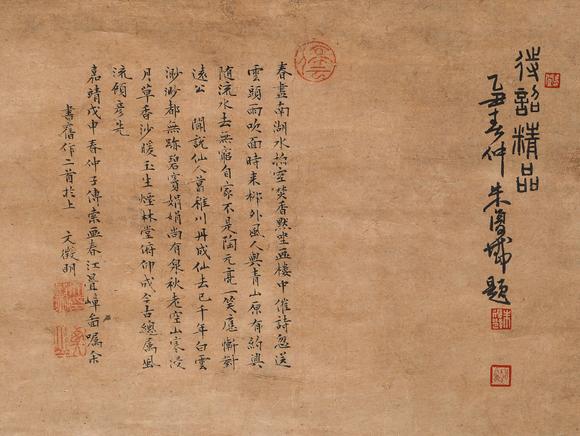 待詔精品
乙丑春仲朱復戡題
春盡南湖水拍空焚香默坐畫樓中催詩忽送
雲頭雨吹面時來柳外風人與青山原有約興
隨流水去無窮自家不是陶元亮一笑應慚對
遠公 聞說仙人葛稚川丹成仙去已千年白雲
渺渺都無跡碧竇娟娟尚有泉秋老空山寒浸
月草香沙暖玉生煙林堂俯仰成今古總屬風
流顧彥先
嘉靖戊申春仲子傳索畫春江疊嶂圖囑余
書舊作二首於上 文徵明